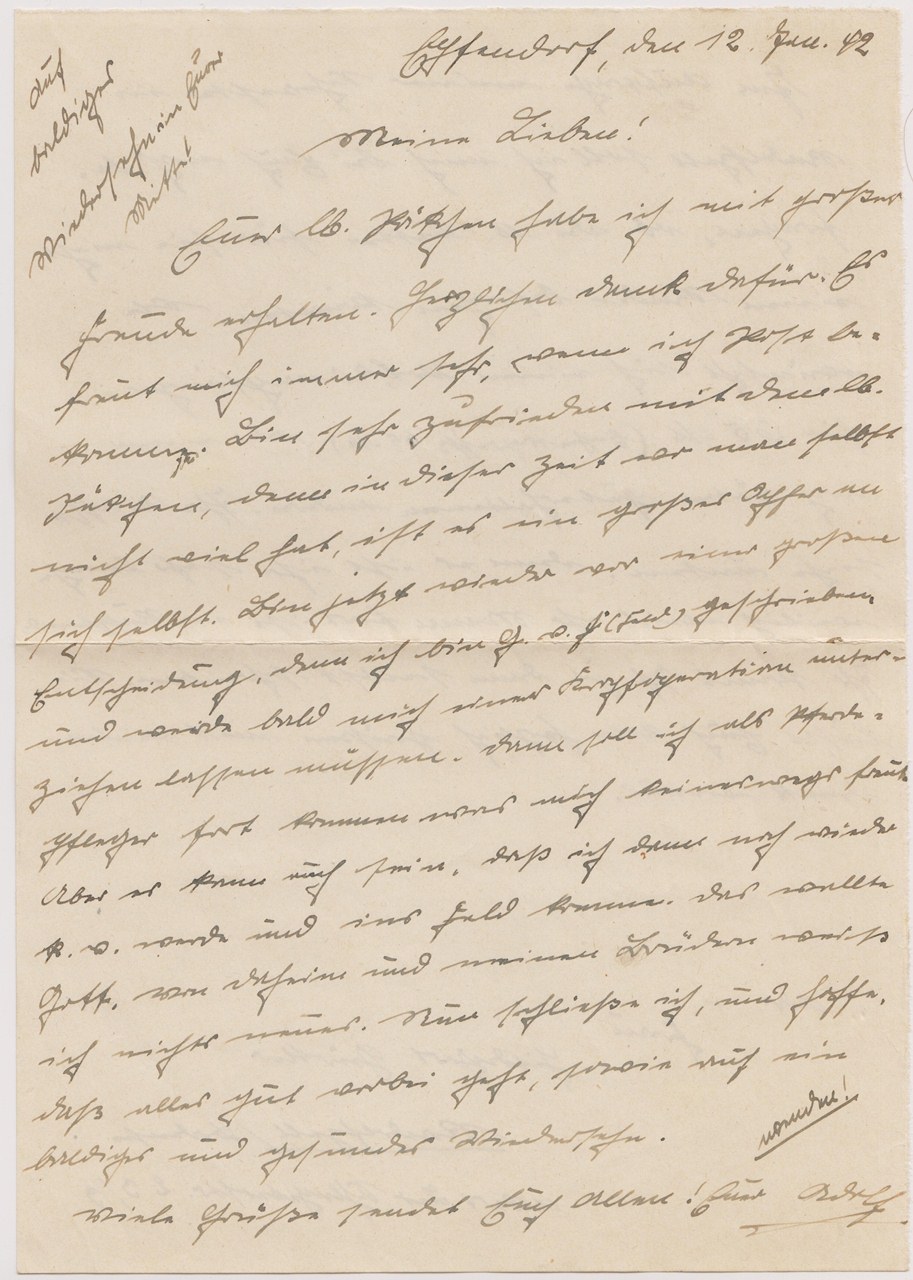 Auf
baldiges
Wiedersehn in Eurer
Mitte!
den 12. Jan. 42
Meine Lieben!
Euer lb. Päkchen habe ich mit großer
Freude erhalten. Herzlichen dank dafür. Es
freut mich immer sehr, wenn ich Post be-
komme. Bin sehr zufrieden mit dem lb.
Päkchen, denn in dieser Zeit wo man selbst
nicht viel hat, ist es ein großes Opfer an
sich selbst. Bin jetzt wieder vor einer großen
Entscheidung, denn ich bin G. v. F. (Feld) geschrieben
und werde bald mich einer Kropfoperation unter-
ziehen lassen müssen. dann soll ich als Pferde-
pfleger fort kommen was mich keineswegs freut.
Aber es kann auch sein, daß ich dann noch wieder
k. v. werde und ins Feld komme. das wollte
Gott. von daheim und meinen Brüdern weiß
ich nichts neues. Nun schließe ich, und hoffe,
daß alles gut vorbei geht, sowie auf ein
baldiges und gesundes Wiedersehn.
wenden!
Viele Grüße sendet Euch Allen! Euer Adolf